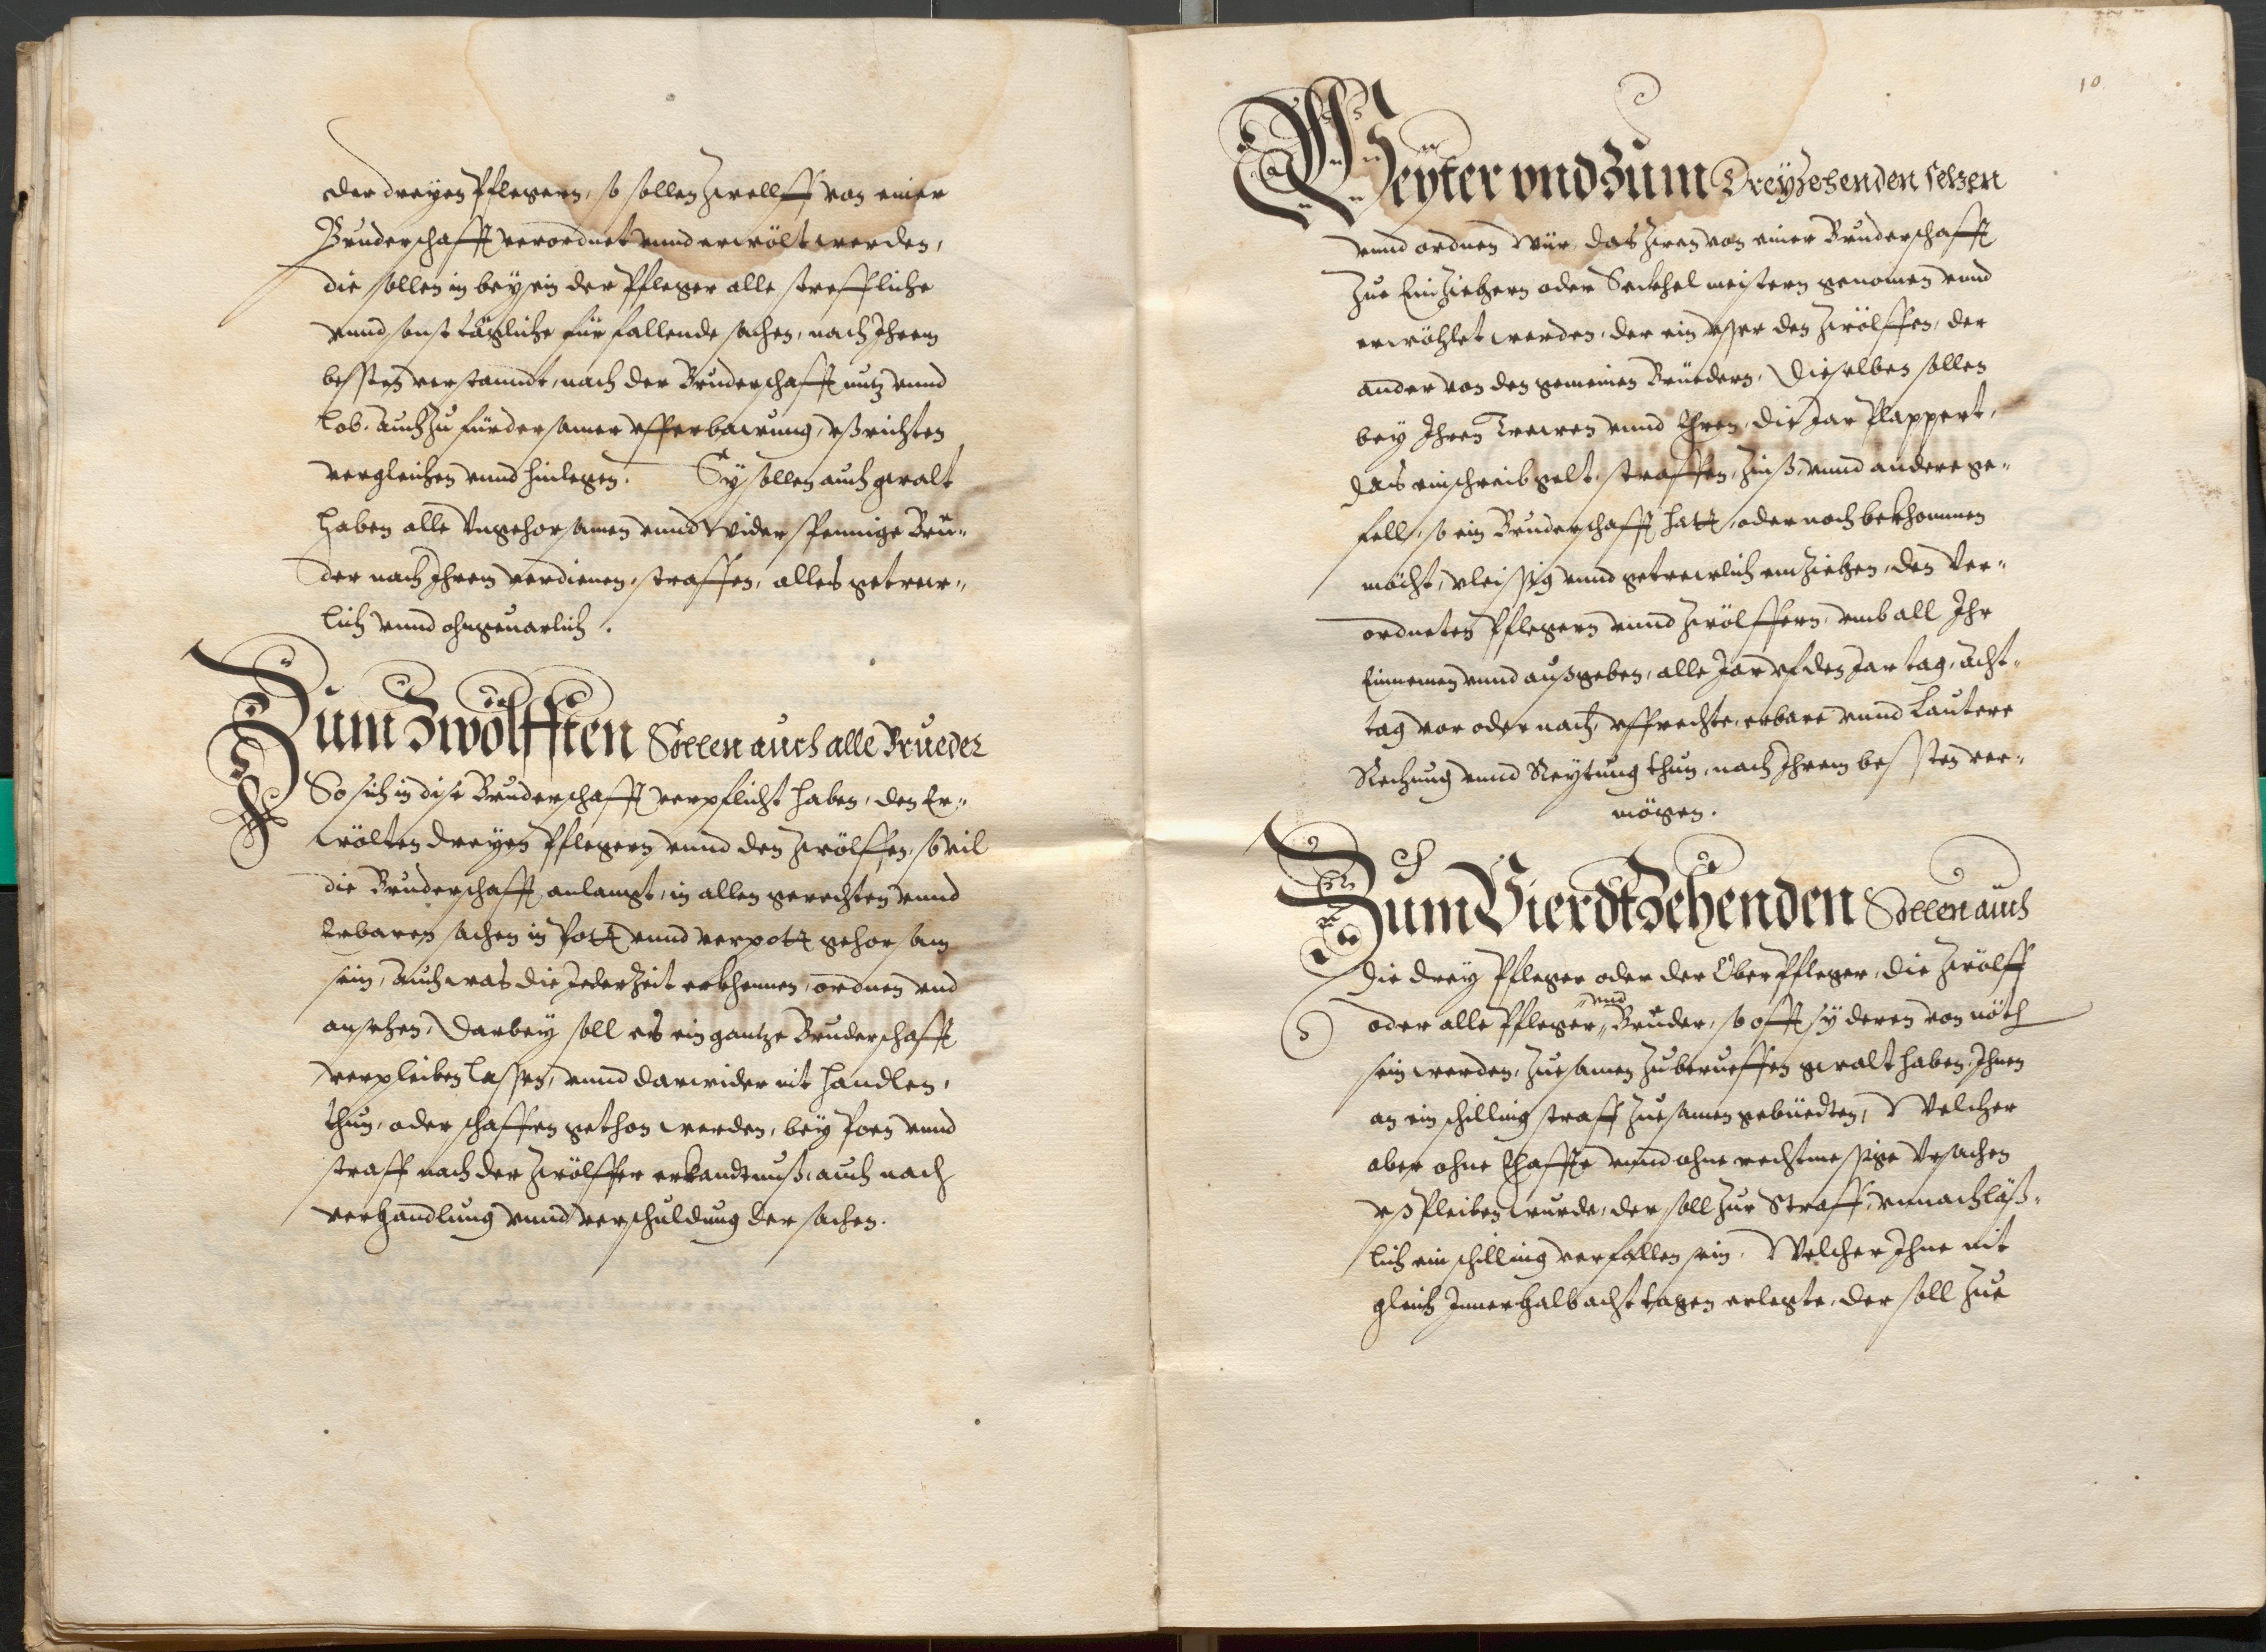 der dreyen Pflegern, so sollen zwellff von einer
Bruderschafft verordnet vnnd erwölt werden,
die sollen in beysein der Pfleger alle streffliche
vnnd sonst tägliche fürfallende sachen, nach Ihrem
besten verstanndt, nach der Bruderschafft nutz vnnd
lob. auch zu fürdersamer vfferbawung, vßrichten
vergleichen vnnd hinlegen. Sy sollen auch gwalt
haben alle Vngehorsamen vnnd Widerspennige Brü„
der nach Ihrem verdienen, straffen, alles getrew„
lich vnnd ohngeuarlich.
Zum Zwölfften Sollen auch alle Brueder
So sich in dise Bruderschafft verpflicht haben, den Er„
wölten dreyen Pflegern vnnd den zwölffen, so vil
die Bruderschafft anlangt, in allen gerechten vnnd
Erbaren sachen in Pott vnnd verpott gehorsam
sein, auch was die Jederzeit erkhennen, ordnen vnd
ansehen, Darbey soll es ein gantze Bruderschafft
verpleiben lassen, vnnd darwider nit handlen,
thun, oder schaffen gethon werden, bey Poen vnnd
straff nach der zwölffer erkandtnuß, auch nach
verhandlung vnnd verschuldung der sachen.
10
Weyter vnd Zum Dreyzehenden setzen
vnnd ordnen Wür, das zwen von einer Bruderschafft
zue Einziehern oder Seckhelmeistern genomen vnnd
erwöhlet werden, der ein vsser den zwölffen, der
ander von den gemeinen Brüedern, Dieselben sollen
bey Ihren Trewen vnnd Ehren, die Jar Plappert,
das einschreib gelt, straffen, zinß, vnnd andere ge„
fell, so ein Bruderschafft hatt, oder noch bekhommen
möcht, vleissig vnnd getrewlich einziehen, den Ver„
ordneten Pflegern vnnd zwölffern, vmb all Ihr
Einnemen vnnd außgeben, alle Jar vf den Jartag, acht„
tag vor oder nach, vffrechte, erbare vnnd Lautere
Rechnung vnnd Reyttung thun, nach Ihrem besten ver„
mögen.
Zum Vierdtzehenden Sollen auch
die drey Pfleger oder der Ober Pfleger, die zwölff
oder alle Pfleger „vnd„ Brüder, so offt sy deren von nöth
sein werden, zuesamen zu berueffen gwalt haben, Ihnen
an ein schilling straff zuesamen gebüedten, Welcher
aber ohne Ehaffte vnnd ohne rechtmessige Vrsachen
vßpleiben wurde, der soll zur Straff, vnnachläß„
lich ein schilling verfallen sein. Welcher Ihne nit
gleich Innerhalb acht tagen erlegte, der soll zue